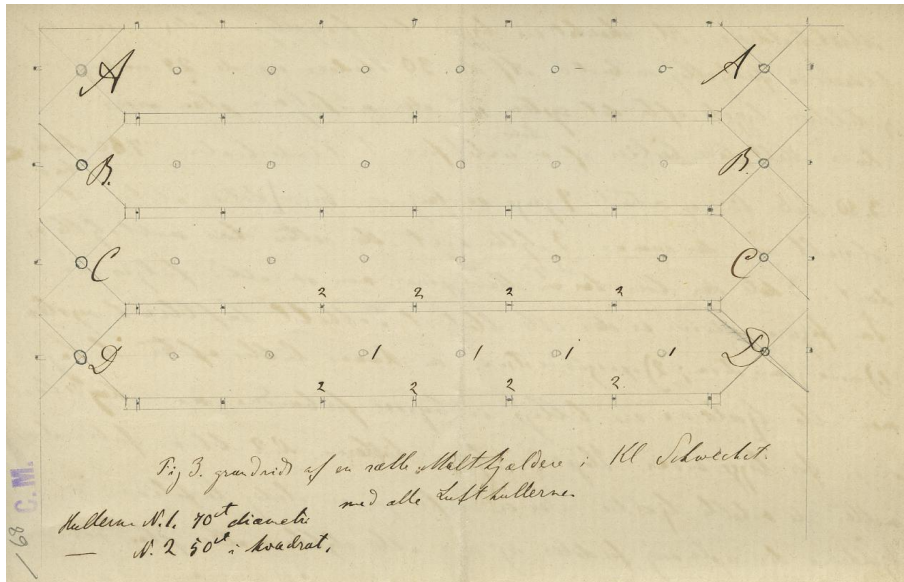 A A
B. B.
C C
2 2 2 2
D 1 1 1 1 D
2 2 2 2.
Fig 3. grundrids af en række Maltkjældere i Kl Schwechet.
med alle Lufthullerne
Hullerne N. 1. 70ct diameter
— N. 2 50ct i kvadrat.
C.M.
168